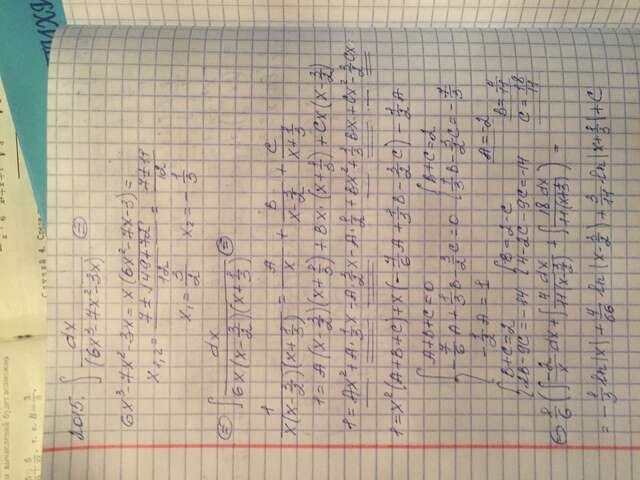 2015. ∫ dx/(6x³-7x²-3x) ⊜
6x³-7x²-3x = x(6x²-7x-3) =
x₁,₂ = (7±√(49+72))/12 = (7±11)/12
x₁ = 3/2 x₂ = -1/3
⊜ ∫ dx/(6x(x-3/2)(x+1/3)) ⊜
1/(x(x-3/2)(x+1/3)) = A/x + B/(x-3/2) + C/(x+1/3)
1 = A(x-3/2)(x+1/3) + Bx(x+1/3) + Cx(x-3/2)
1 = Ax² + A·1/3x - A·3/2x - A·1/2 + Bx² + 1/3Bx + Cx² - 3/2Cx
1 = x²(A+B+C) + x(-7/6A + 1/3B - 3/2C) - 1/2A
{ A+B+C=0 { B+C=2
-7/6A + 1/3B - 3/2C = 0 { 1/3B - 3/2C = -7/3
-1/2A = 1 A = -2
{ B+C=2 { B=2-C B = 4/11
{ 2B-9C=-14 { 4-2C-9C=-14 C = 18/11
⊜ 1/6 (∫ -2/x dx + ∫ 4 dx/(11(x-3/2)) + ∫ 18 dx/(11(x+1/3))) =
= -1/3 ln|x| + 4/66 ln|x-3/2| + 3/11 ln|x+1/3| + C